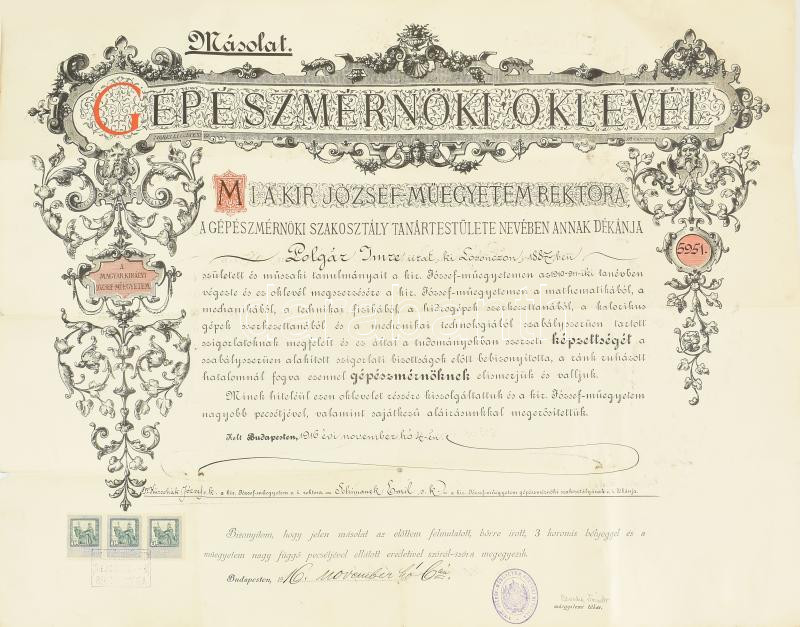 Másolat.
GÉPÉSZMÉRNÖKI OKLEVÉL
MI A KIR. JÓZSEF-MŰEGYETEM REKTORA
A GÉPÉSZMÉRNÖKI SZAKOSZTÁLY TANÁRTESTÜLETE NEVÉBEN ANNAK DÉKÁNJA
Polgár Imre urat, ki Losonczon, 1887-ben
született és műszaki tanulmányait a kir. József-műegyetemen az 1910-911-iki tanévben
végezte és ez oklevél megszerzésére a kir. József-műegyetemen a mathematikából, a
mechanikából, a technikai fizikából, a hidrogépek szerkezettanából, a kalorikus
gépek szerkezettanából és a mechanikai technologiából szabályszerűen tartott
szigorlatoknak megfelelt és ez által a tudományokban szerzett képzettségét a
szabályszerűen alakított szigorlati bizottságok előtt bebizonyította, a ránk ruházott
hatalomnál fogva ezennel gépészmérnöknek elismerjük és valljuk.
Minek hiteléül ezen oklevelet részére kiszolgáltattuk és a kir. József-műegyetem
nagyobb pecsétjével, valamint sajátkezű aláírásunkkal megerősítettük.
Kelt Budapesten, 1916 évi november hó 4-én.
A
MAGYAR KIRÁLYI
JÓZSEF-MŰEGYETEM
5951.
Dr. Kürschák József s. k. a kir. József-műegyetem e. i. rektora. Schimanek Emil s. k. a kir. József-műegyetem gépészmérnöki szakosztályának e. i. dékánja.
Bizonyítom, hogy jelen másolat az előttem felmutatott, bőrre irott, 3 koronás bélyeggel és a
műegyetem nagy függő pecsétjével ellátott eredetivel szóról-szóra megegyezik.
Budapesten, 1916. november hó 6-án.
műegyetemi titkár.